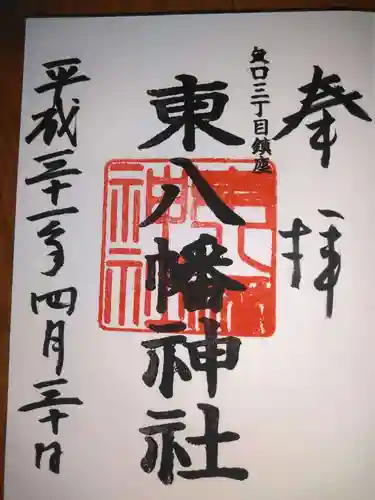 奉拝
矢口二丁目鎮座
東八幡神社
平成三十一年四月三十日